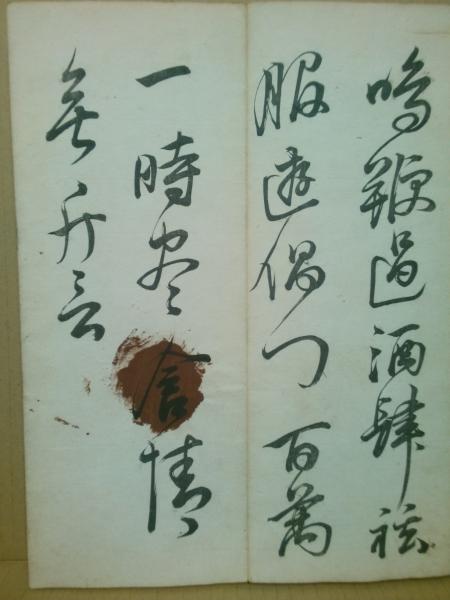 鳴鞭過酒肆袨
服遊倡門百萬
一時尽含情
無片言